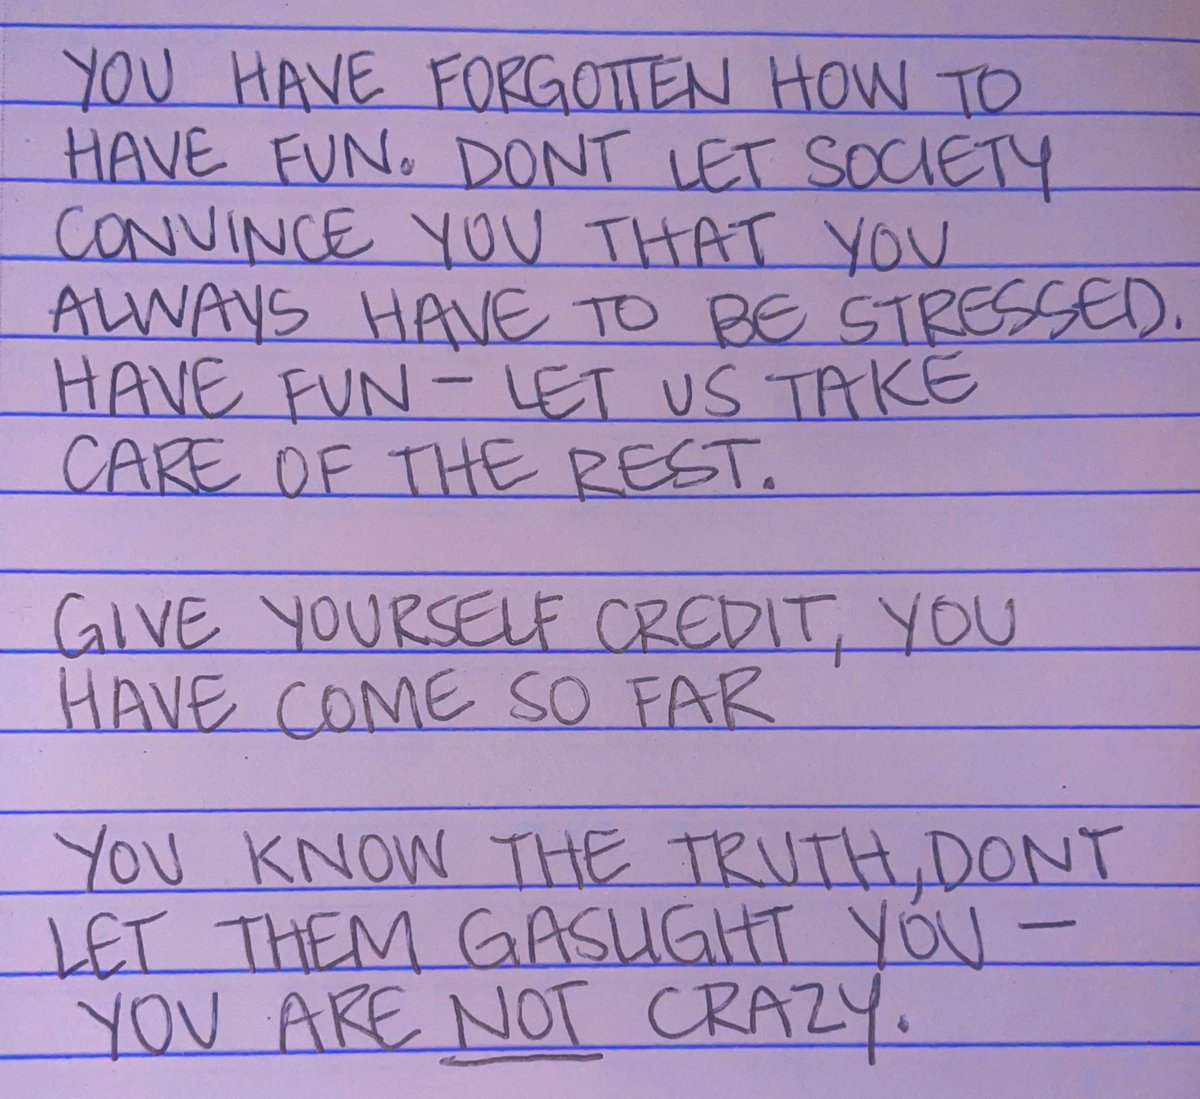 YOU HAVE FORGOTTEN HOW TO
HAVE FUN. DONT LET SOCIETY
CONVINCE YOU THAT YOU
ALWAYS HAVE TO BE STRESSED.
HAVE FUN - LET US TAKE
CARE OF THE REST.
GIVE YOURSELF CREDIT, YOU
HAVE COME SO FAR
YOU KNOW THE TRUTH, DONT
LET THEM GASLIGHT YOU -
YOU ARE NOT CRAZY.